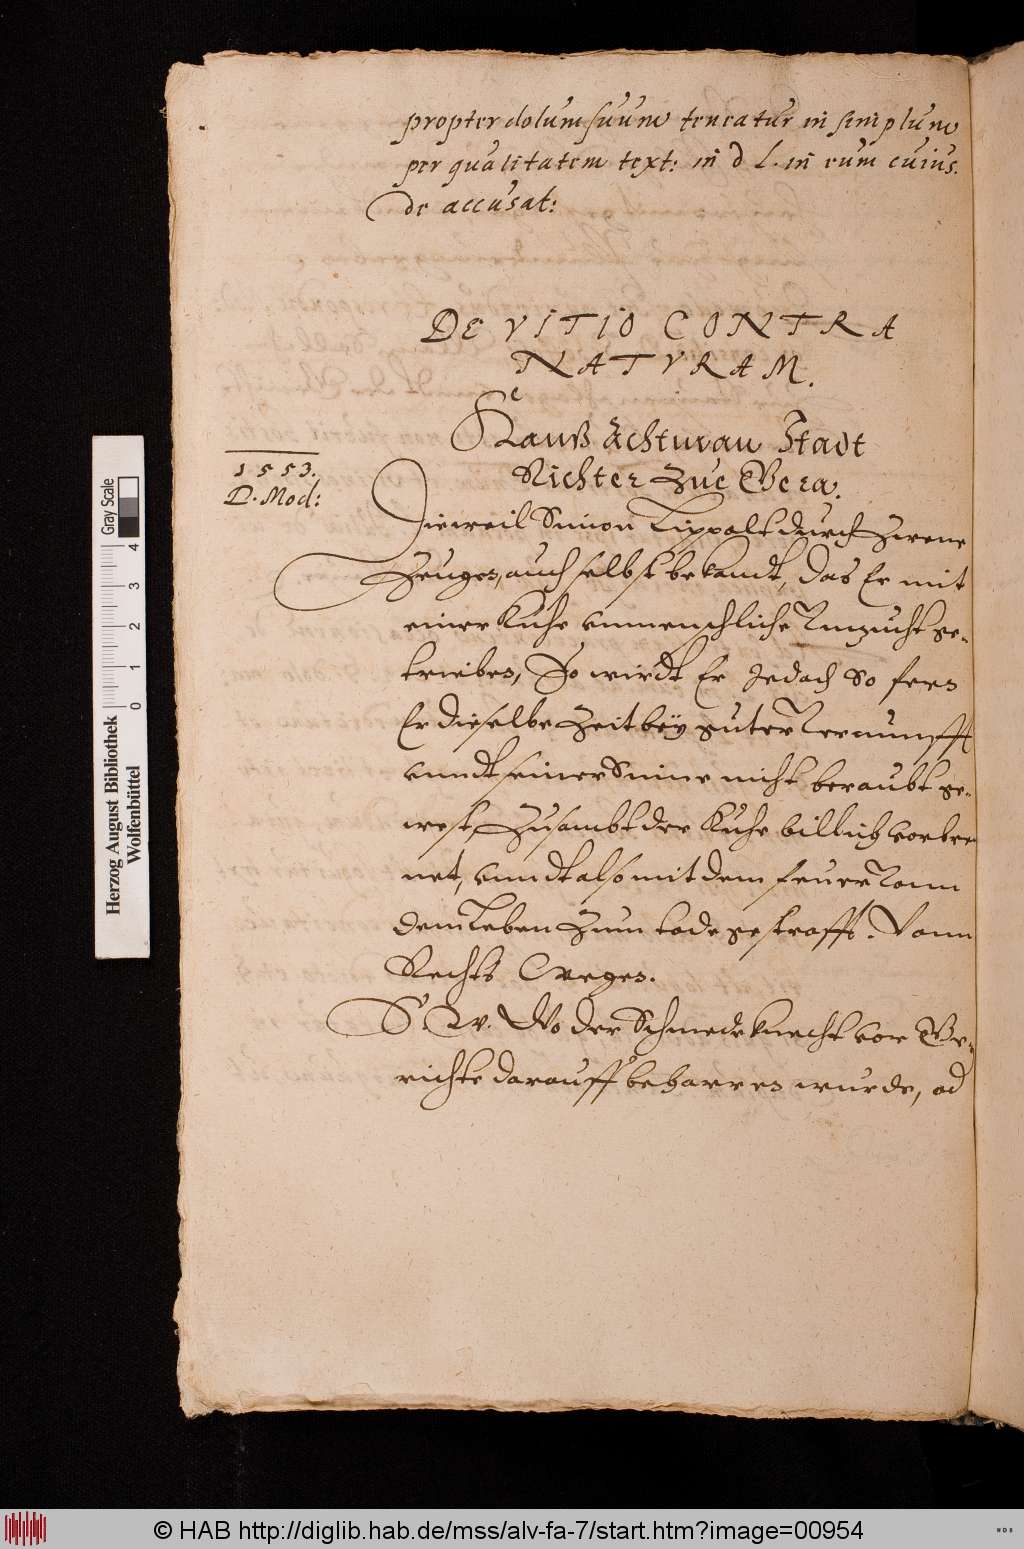 propter dolum suum teneatur in simplum
per qualitatem text: in d L. in eum cuius.
de accusat:
DE VITIO CONTRA
NATVRAM.
Achturan Stadt
Richter Zue Gera.
1553.
D. Mod:
Dieweil Simon Lippolt durch Zwene
Zeugen, auch selbst bekandt, das Er mit
einer Kuhe vnmenschliche Vnzucht ge-
trieben, So wirdt Er Jedoch so fern
Er dieselbe Zeit beÿ guter Vernunfft
vnndt seiner Sinne nicht beraubt ge-
west, Zusambt der Kuhe billich vorbren
net, vnndt also mit dem feuer vom
dem Leben Zum tode gestrafft. Vonn
Rechts Weges.
Wo der Schmedeknecht vor Ge-
richte darauff beharren wurde, od
Gray Scale
4 3 2 1 0
Herzog August Bibliothek
Wolfenbüttel
© HAB http://diglib.hab.de/mss/alv-fa-7/start.htm?image=00954